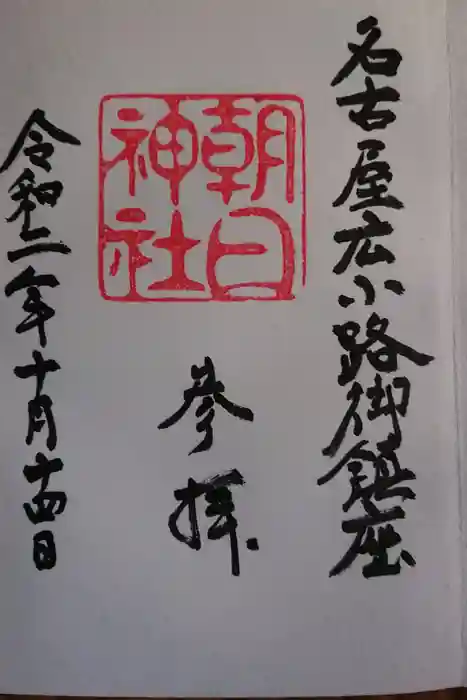 名古屋広小路御鎮座
朝日
神社
参拝
令和二年十月十四日